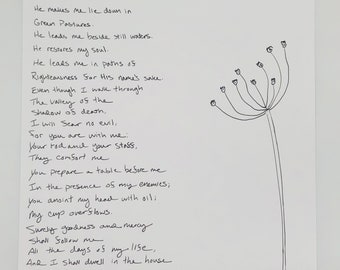 He makes me lie down in
Green Pastures.
He leads me beside still waters.
He restores my soul.
He leads me in paths of
Righteousness for His name's sake.
Even though I walk through
The valley of the
Shadow of death.
I will fear no evil.
For you are with me:
Your rod and your staff,
They comfort me
You prepare a table before me
In the presence of my enemies;
You anoint my head with oil;
My cup overflows.
Surely goodness and mercy
Shall follow me
All the days of my life,
And I shall dwell in the house